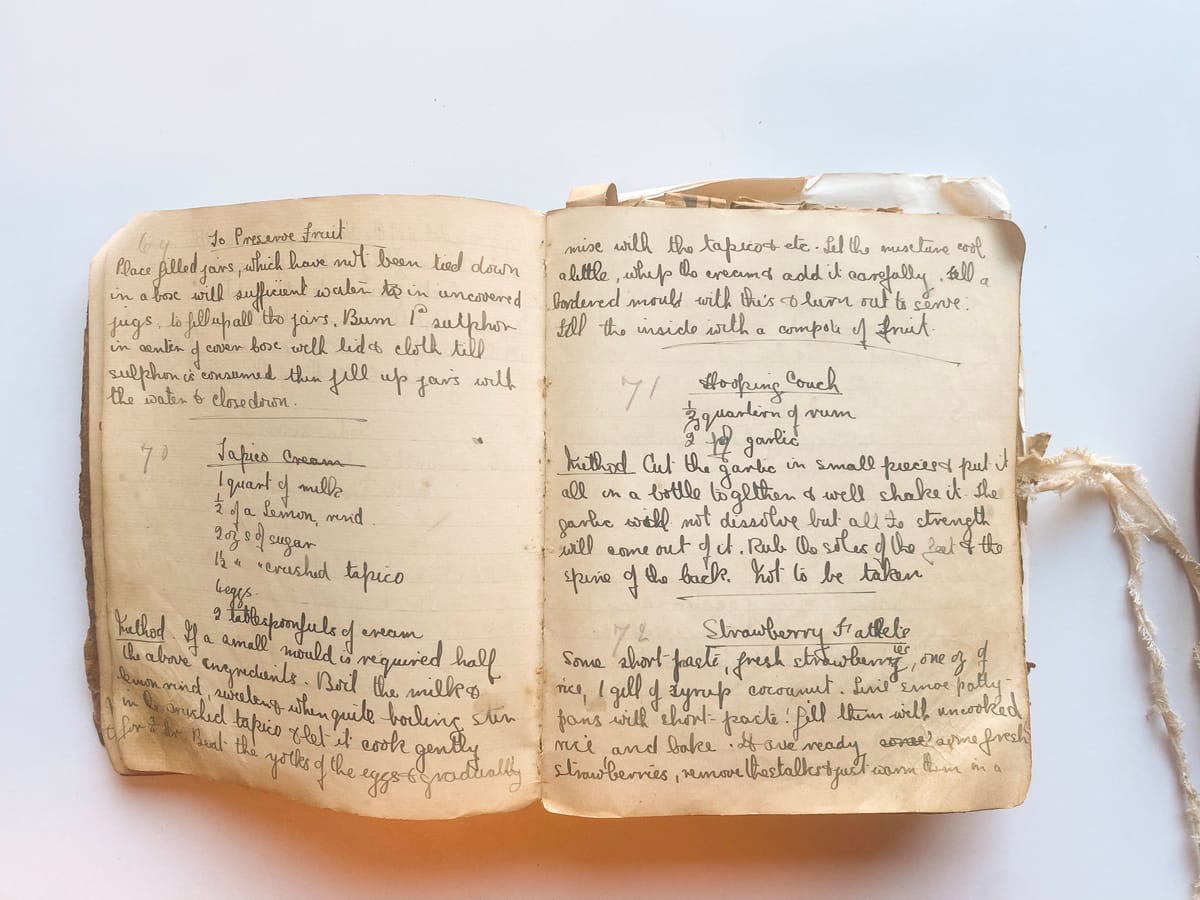 69 To Preserve Fruit
Place filled jars, which have not been tied down
in a box with sufficient water to in uncovered
jugs, to fill up all the jars. Burn 1d sulphor
in center of cover box with lid & cloth till
sulphor is consumed then fill up jars with
the water & close down.
70 Tapico Cream
1 quart of milk
½ of a Lemon, rind
2 ozs of sugar
1½ " " crushed tapico
4 eggs.
2 tablespoonfuls of cream
Method. If a small mould is required half
the above ingredients. Boil the milk &
lemon rind, sweeten & when quite boiling stir
in the crushed tapico & let it cook gently
for hr. Beat the yolks of the eggs & gradually
mixe with the tapico & etc. Let the mixture cool
a little, whip the cream & add it carefully. Fill a
bordered mould with this & turn out to serve.
Fill the inside with a compote of fruit.
71 Hooping Couch
½ quartern of rum
2 of garlic
Method Cut the garlic in small pieces & put it
all in a bottle to glthen & well shake it. The
garlic will not dissolve but all to strength
will come out of it. Rub the soles of the feet & the
spine of the back. Not to be taken
72 Strawberry
Some short paste, fresh strawberries, one oz of
rice, 1 gill of syrup cocoanut. Line smoe patty-
pans with short-paste. fill them with uncooked
rice and bake. Have ready some fresh
strawberries, remove the stalks & just warm them in a